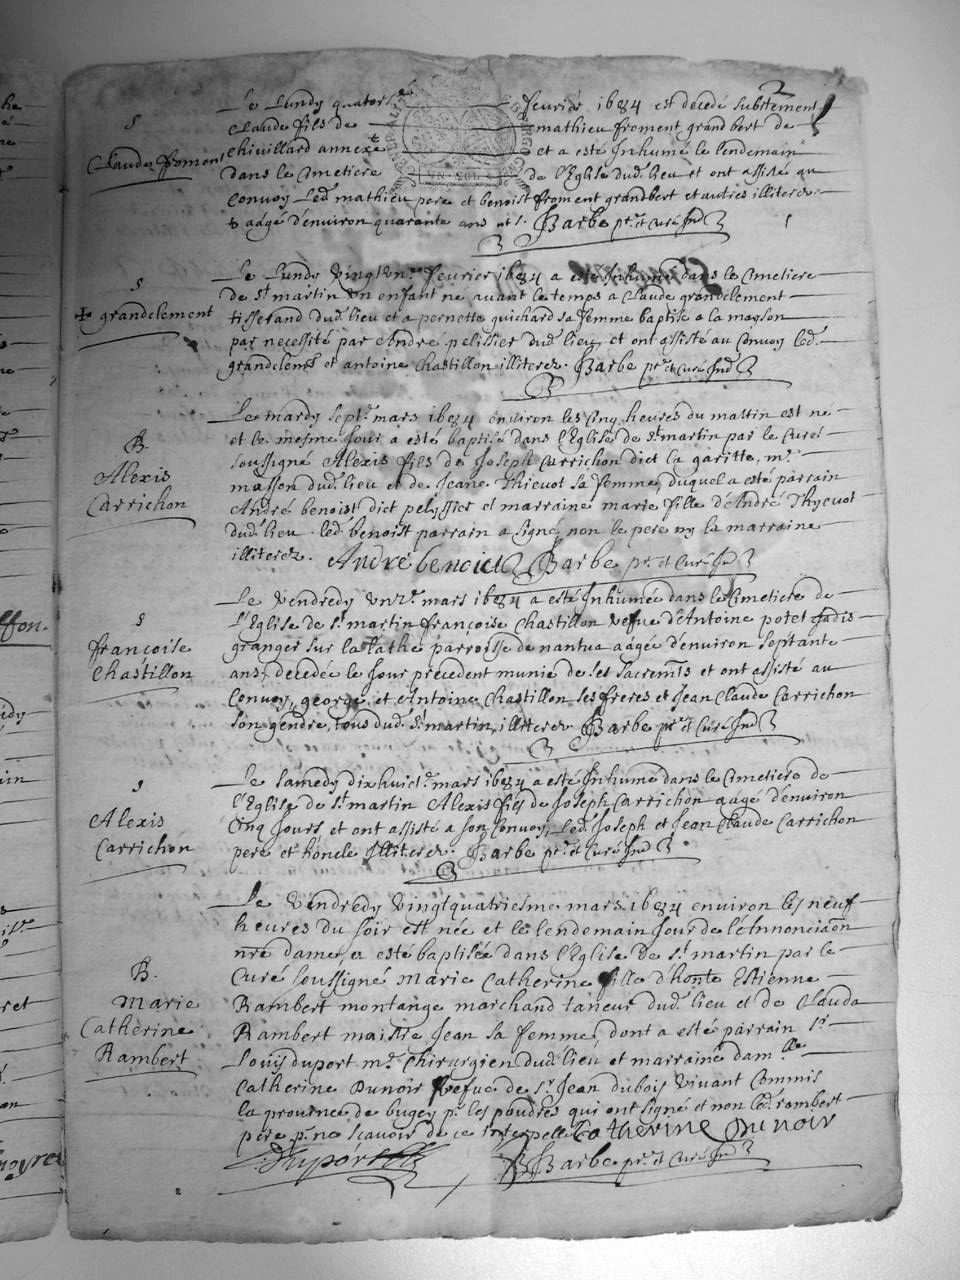 2
S
Claude fromont
Le Lundy quatorse fevrier 1684 est decedé subitement
Claude fils de mathieu froment grandbert de
Chivillard annexe et a esté Inhumé le lendemain
dans le Cimetiere de l'Eglise dud. lieu et ont assisté au
Convoy led. mathieu pere et benoist froment grandbert et autres illiterez
aagé d'environ quarante ans Barbe ptre et Curé Ind
S
+ grandclement
Le Lundy vingt un fevrier 1684 a esté Inhumé dans le Cimetiere
de St martin Un enfant né avant le temps a Claude grandclement
tisserand dud. lieu et a pernette guichard sa femme baptisé a la mayson
par necessité par Andre pelissier dud. lieu, et ont assisté au Convoy led.
grandclemt et antoine Chastillon illiterez. Barbe ptre et Curé Ind
B.
Alexis
Carrichon
Le mardy sept. mars 1684 environ les Cinq heures du mattin est né
et le mesme Jour a esté baptisé dans l'Eglise de St martin par le Curé
soussigné Alexis fils de Joseph Carrichon dict la garitte, mre
masson dud. lieu et de Jeane Thievot sa femme, duquel a esté parrain
André benoist dict pelyssier et marraine marie fille d'André Thyevot
dud. lieu. led. benoist parrain a signé, non le pere ny la marraine
illiterez. André benoict Barbe ptre et Curé Ind
S
françoise
Chastillon
Le Vendredy Unze. mars 1684 a esté Inhumée dans le Cimetiere de
l'Eglise de St martin françoise Chastillon vefue d'Antoine potet Jadis
granger sur parroisse de nantua aagée d'environ septante
ans, decedée le Jour precedent munie de ses sacremts et ont assisté au
Convoy, george et Antoine Chastillon ses freres et Jean Claude Carrichon
son gendre, tous dud. St martin, illiterez Barbe ptre et Curé Ind
S
Alexis
Carrichon
Le samedy dixhuict. mars 1684 a esté Inhumé dans le Cimetiere de
l'Eglise de St martin Alexis fils de Joseph Carrichon aagé d'environ
Cinq Jours et ont assisté a son Convoy, led. Joseph et Jean Claude Carrichon
pere et honcle Illiterez Barbe ptre et Curé Ind
B.
Marie
Catherine
Rambert
Le Vendredy Vingtquatriesme mars 1684 environ les neuf
heures du soir est née et le lendemain Jour de l'Annonciaõn
nre dame, a esté baptisée dans l'Eglise de St martin par le
Curé soussigné Marie Catherine fille d'honte Estienne
Rambert montange marchand taneur dud. lieu et de Clauda
Rambert maistre Jean sa femme, dont a esté parrain Sr
Louis duport mre Chirurgien dud. lieu et marraine damlle
Catherine Dunoir vefue de Sr Jean dubois vivant Commis
la province de bugey pr les poudres qui ont signé et non led. rambert
pere pr ne scavoir de ce interpellé Catherine Dunoir
Duport Barbe ptre et Curé Ind